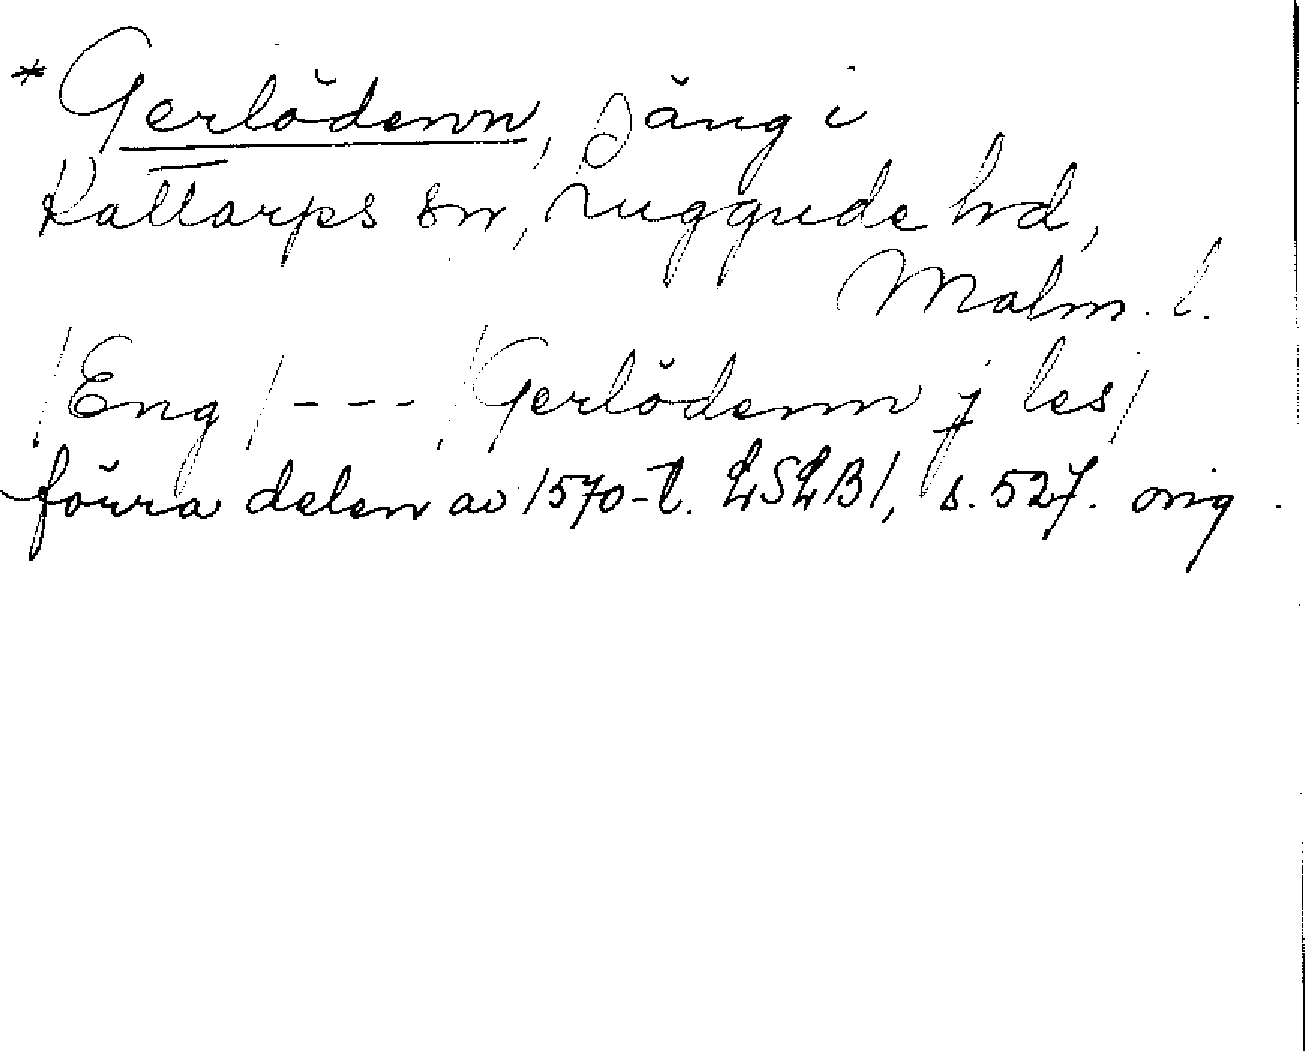 *Gerlödenn, äng i
Kattarps sn, Luggude hd,
Malm. l.
/Eng/ - - - /Gerlödenn j les/
förra delen av 1570-t. LSLB1, s. 527. orig.